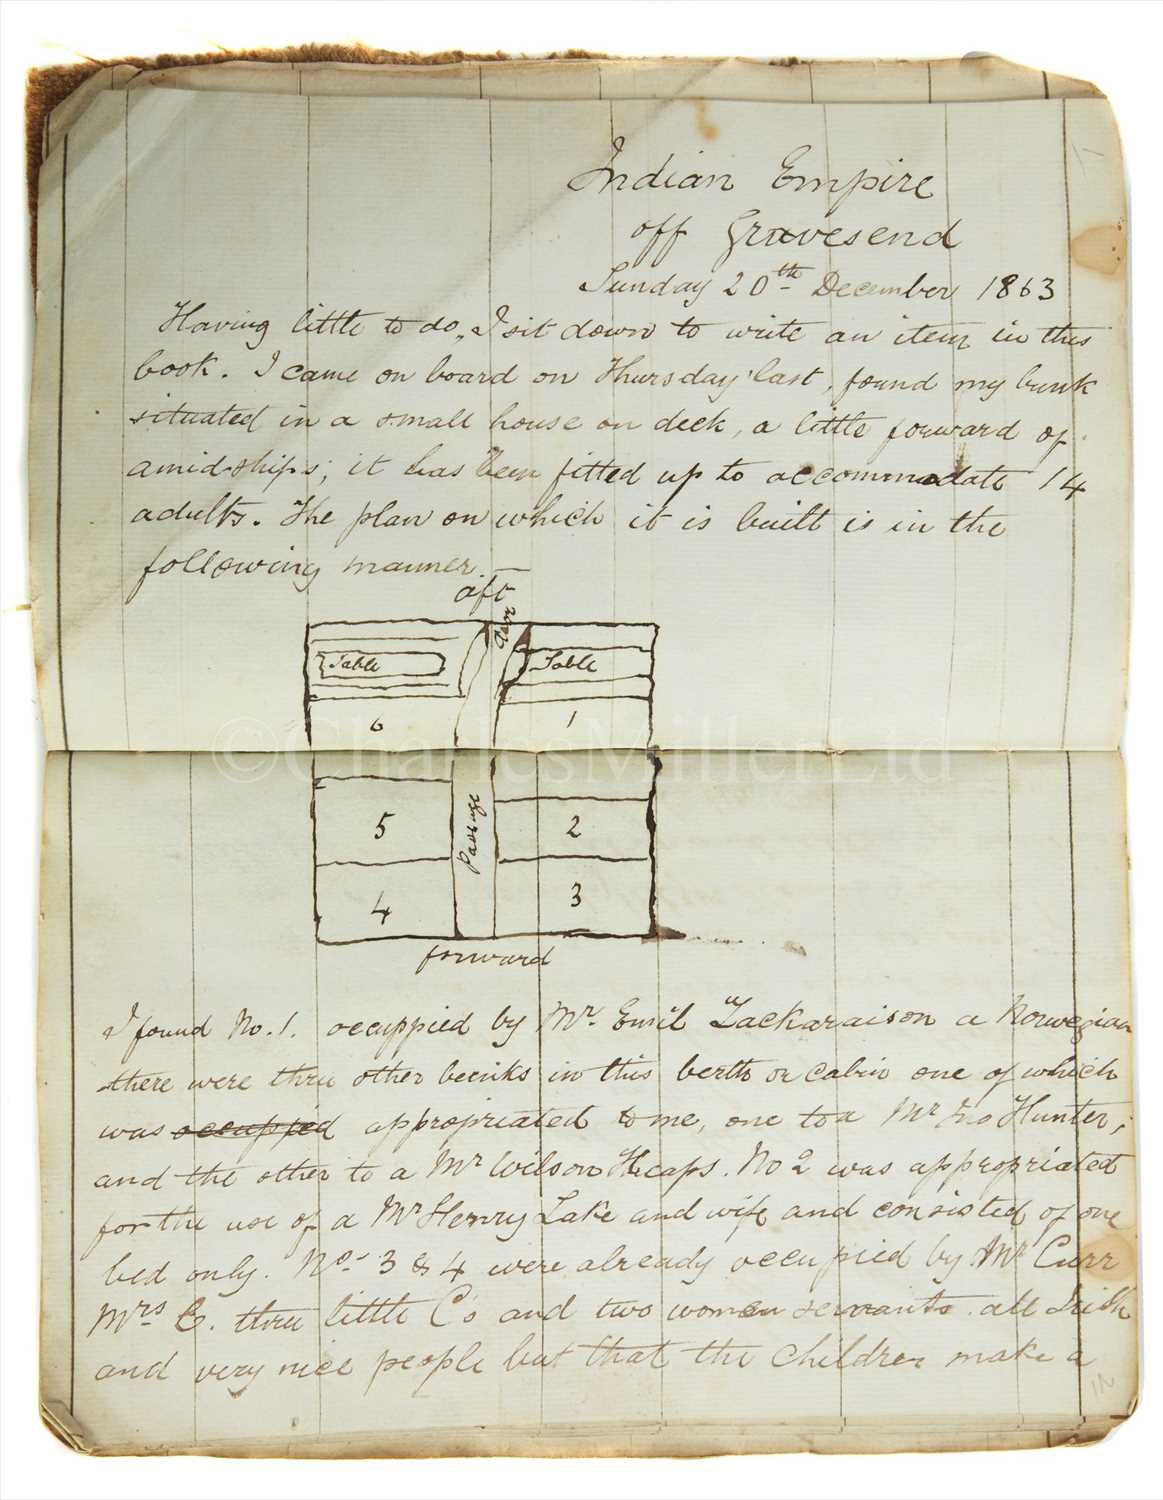 Indian Empire
off Gravesend
Sunday 20th December 1863
Having little to do, I sit down to write an item in this
book. I came on board on Thursday last, found my bunk
situated in a small house on deck, a little forward of
amidships; it has been fitted up to accommodate 14
adults. The plan on which it is built is in the
following manner
aft
Door
Table
Table
6
1
©Charles Miller Ltd
5
Passage
2
4
3
forward
I found No. 1. occuppied by Mr. Emil Zackaraison a Norwegian
there were three other beunks in this berth or cabin one of which
was occuppied appropriated to me, one to a Mr Jno Hunter;
and the other to a Mr Wilson Heaps. No 2 was appropriated
for the use of a Mr Henry Lake and wife and consisted of one
bed only. Nos 3 & 4 were already occupied by Mr Curr
Mrs C. three little C's and two women servants all Irish
and very nice people but that the children make a